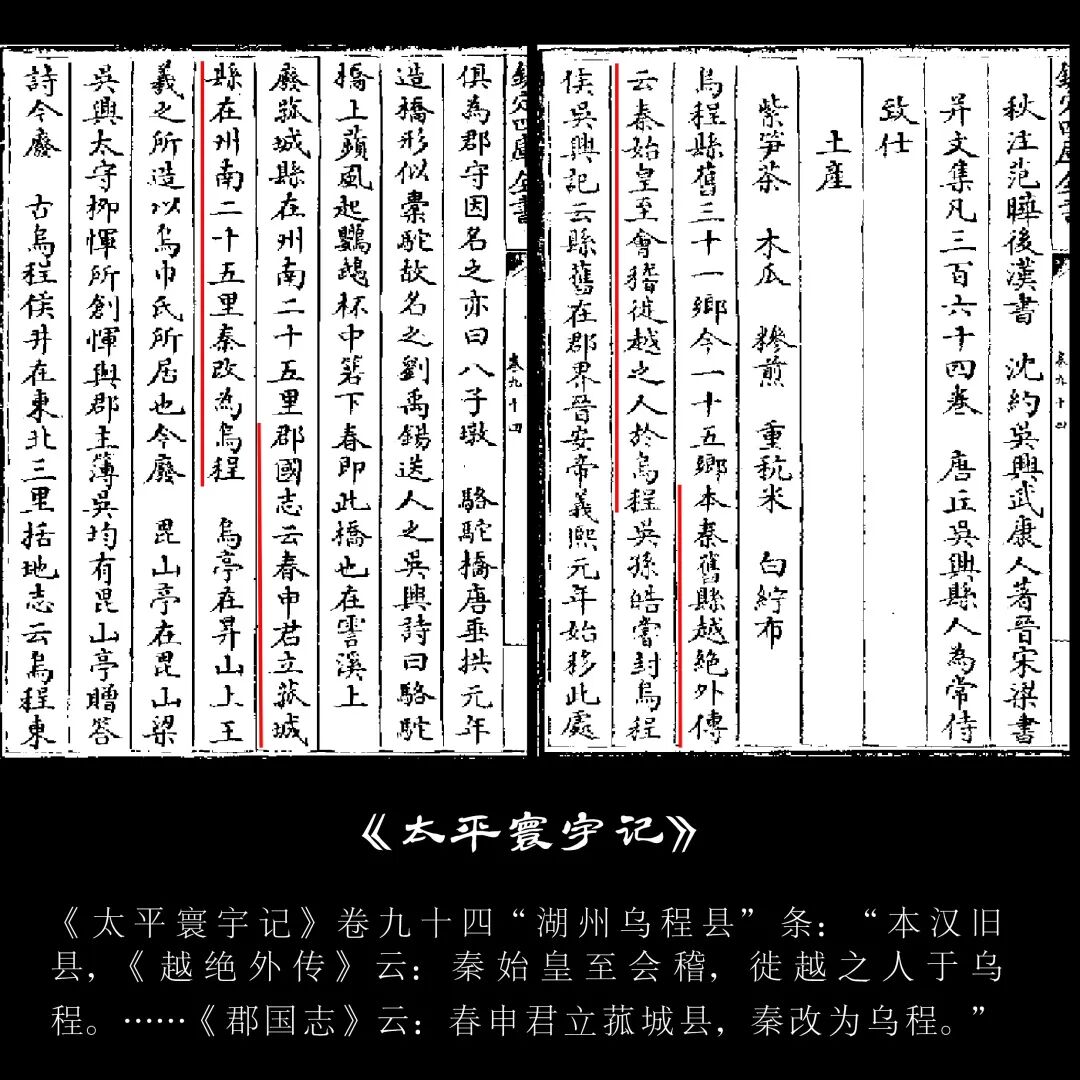 欽定四庫全書 卷九十四
秋注范曄後漢書　沈約吳興武康人著晉宋梁書
并文集凡三百六十四卷　唐丘吳興縣人為常侍
致仕
土產
紫笋茶　木瓜　糝煎　重秔米　白紵布
烏程縣舊三十一鄉今一十五鄉本秦舊縣越絶外傳
云秦始皇至會稽徙越之人於烏程吳孫皓嘗封烏程
侯吳興記云縣舊在郡界晉安帝義熙元年始移此處
欽定四庫全書 卷九十四
俱為郡守因名之亦曰八子墩　駱駝橋唐垂拱元年
造橋形似橐駝故名之劉禹錫送人之吳興詩曰駱駝
橋上蘋風起鸚鵡杯中箬下春即此橋也在霅溪上
廢菰城縣在州南二十五里郡國志云春申君立菰城
縣在州南二十五里秦改為烏程　烏亭在昇山上王
羲之所造以烏巾氏所居也今廢　毘山亭在毘山梁
吳興太守栁惲所創惲與郡主薄吳均有毘山亭贈答
詩今廢　古烏程侯井在東北三里括地志云烏程東
《太平寰宇记》
《太平寰宇记》卷九十四“湖州乌程县”条：“本汉旧
县，《越绝外传》云：秦始皇至会稽，徙越之人于乌
程。……《郡国志》云：春申君立菰城县，秦改为乌程。”